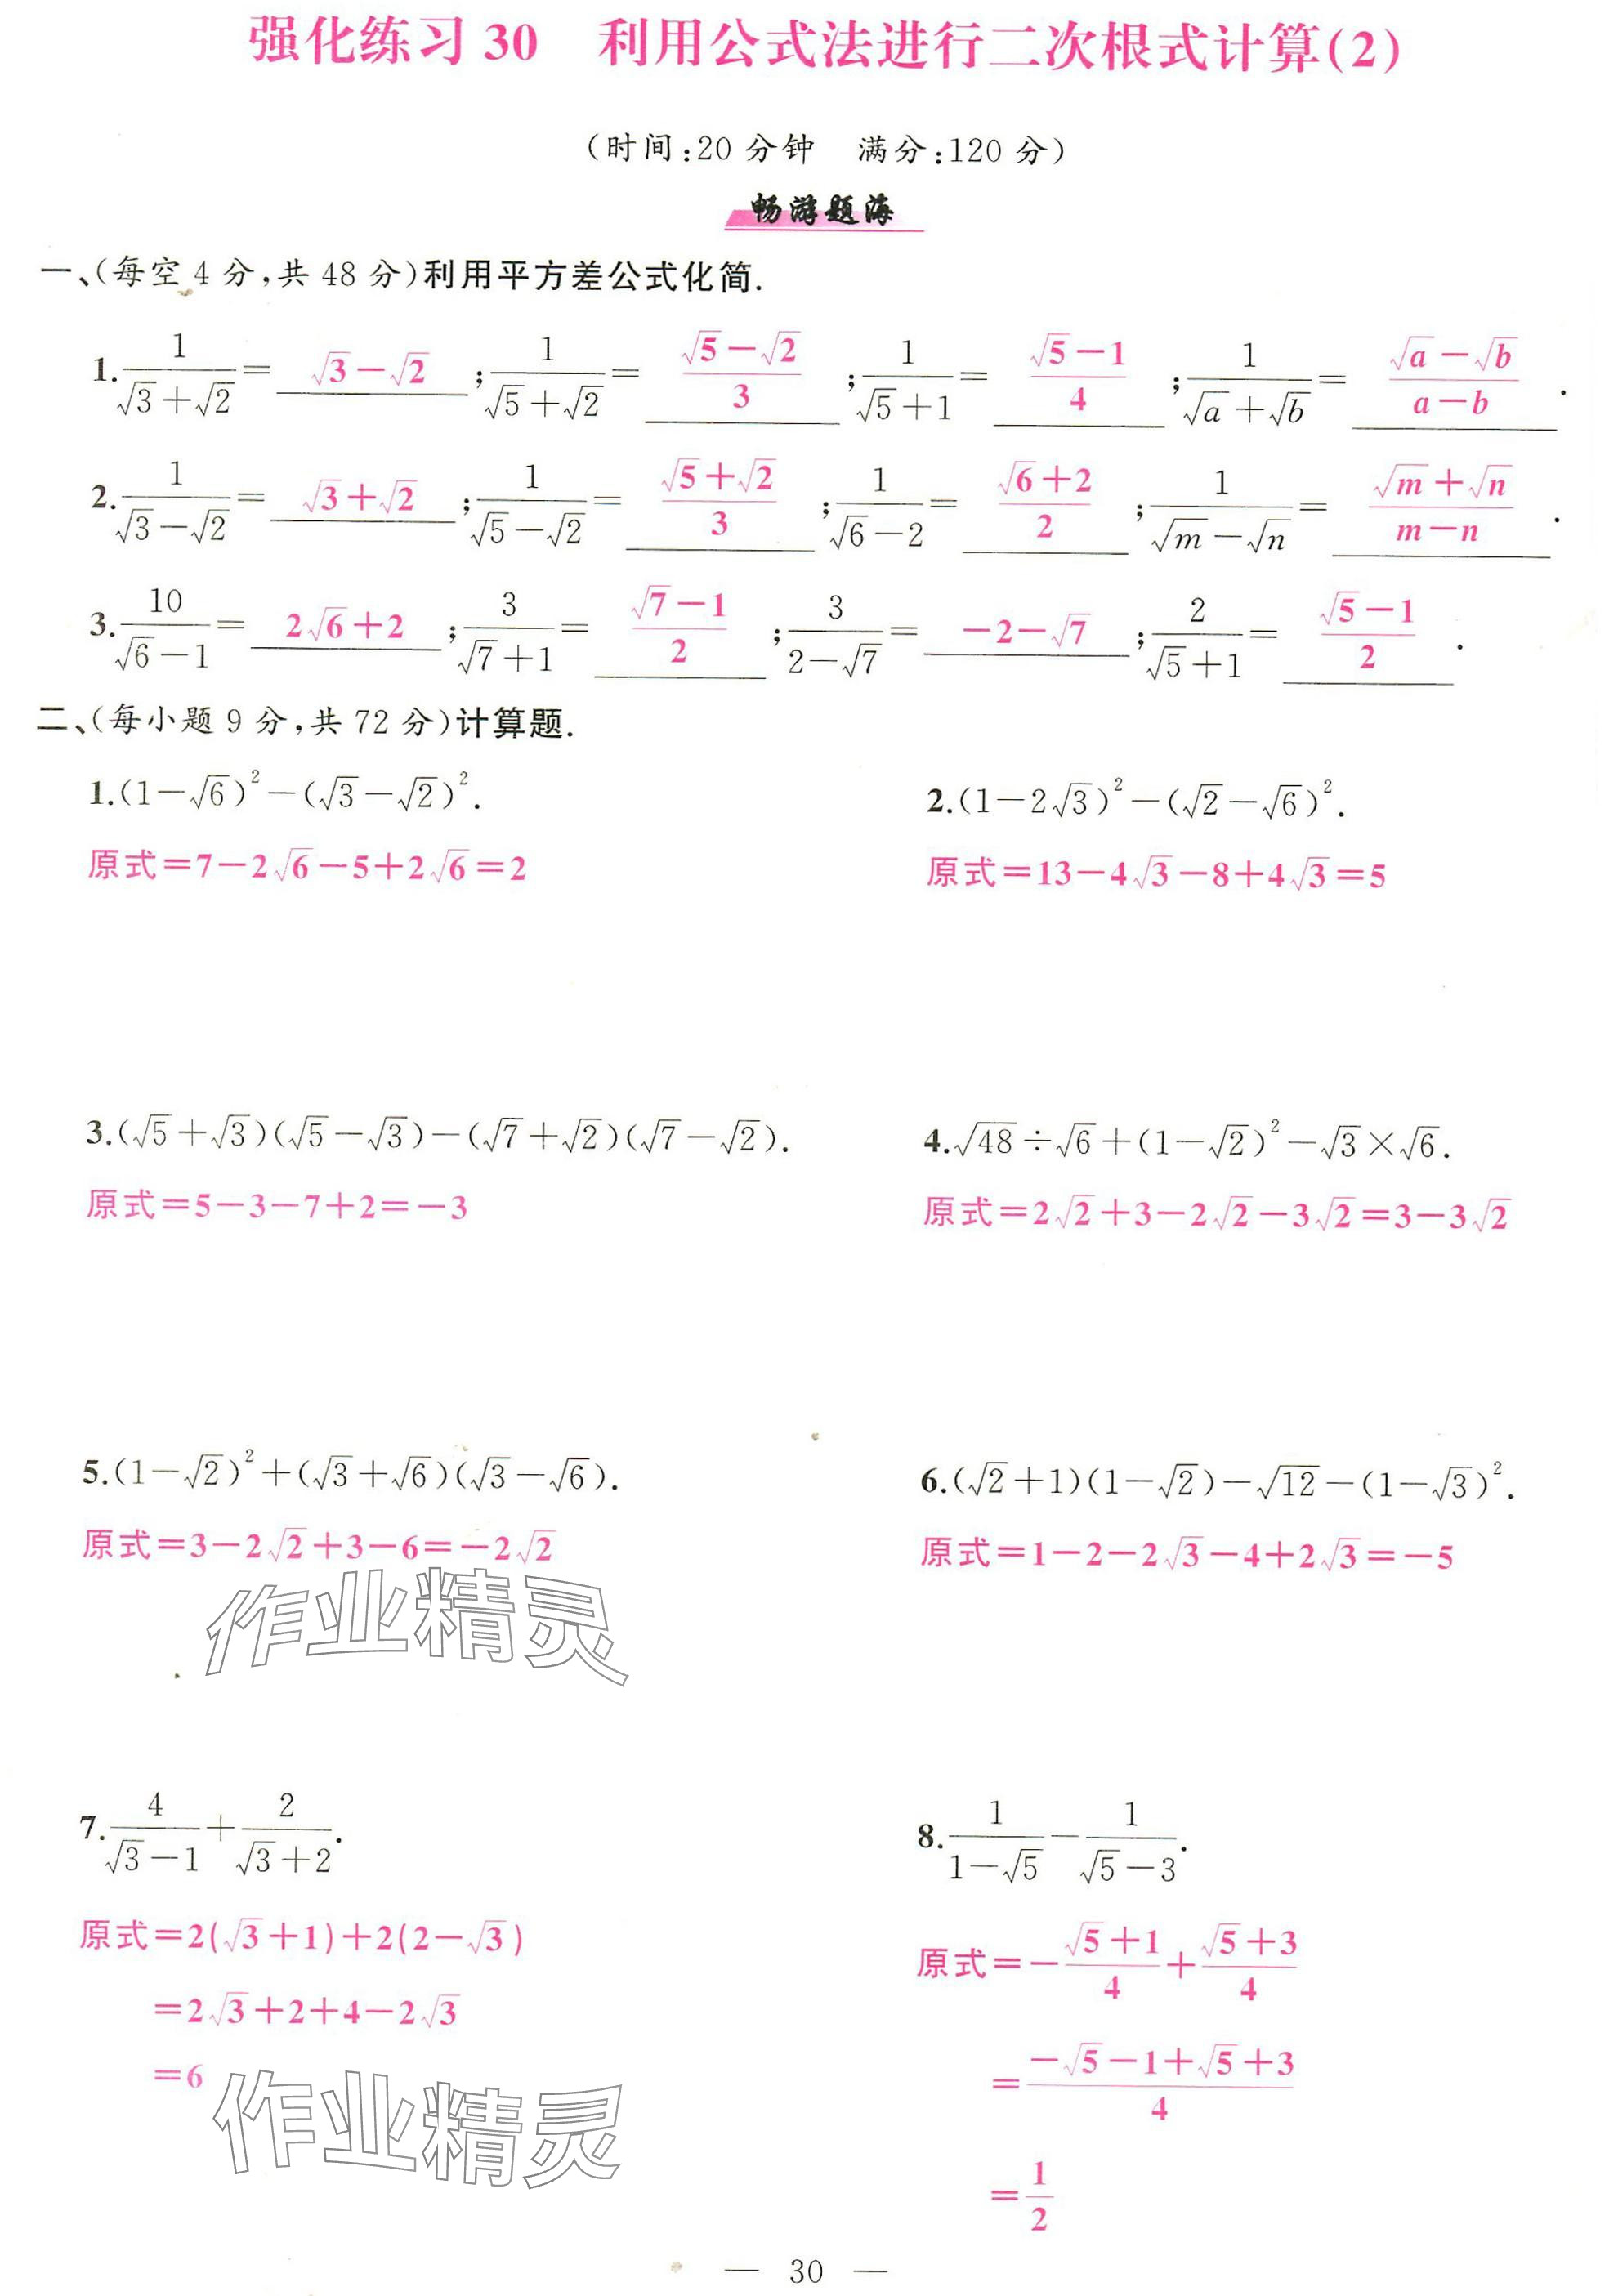 强化练习 30 利用公式法进行二次根式计算(2)
(时间:20 分钟 满分:120 分)
畅游题海
一、(每空 4 分,共 48 分)利用平方差公式化简.
1. 1/(√3+√2) = √3-√2 ; 1/(√5+√2) = (√5-√2)/3 ; 1/(√5+1) = (√5-1)/4 ; 1/(√a+√b) = (√a-√b)/(a-b) .
2. 1/(√3-√2) = √3+√2 ; 1/(√5-√2) = (√5+√2)/3 ; 1/(√6-2) = (√6+2)/2 ; 1/(√m-√n) = (√m+√n)/(m-n) .
3. 10/(√6-1) = 2√6+2 ; 3/(√7+1) = (√7-1)/2 ; 3/(2-√7) = -2-√7 ; 2/(√5+1) = (√5-1)/2 .
二、(每小题 9 分,共 72 分)计算题.
1.(1-√6)²-(√3-√2)². 2.(1-2√3)²-(√2-√6)².
原式=7-2√6-5+2√6=2 原式=13-4√3-8+4√3=5
3.(√5+√3)(√5-√3)-(√7+√2)(√7-√2). 4.√48÷√6+(1-√2)²-√3×√6.
原式=5-3-7+2=-3 原式=2√2+3-2√2-3√2=3-3√2
5.(1-√2)²+(√3+√6)(√3-√6). 6.(√2+1)(1-√2)-√12-(1-√3)².
原式=3-2√2+3-6=-2√2 原式=1-2-2√3-4+2√3=-5
作业精灵
7. 4/(√3-1) + 2/(√3+2). 8. 1/(1-√5) - 1/(√5-3).
原式=2(√3+1)+2(2-√3) 原式=-(√5+1)/4+(√5+3)/4
=2√3+2+4-2√3 =(-√5-1+√5+3)/4
=6 =1/2
作业精灵
— 30 —